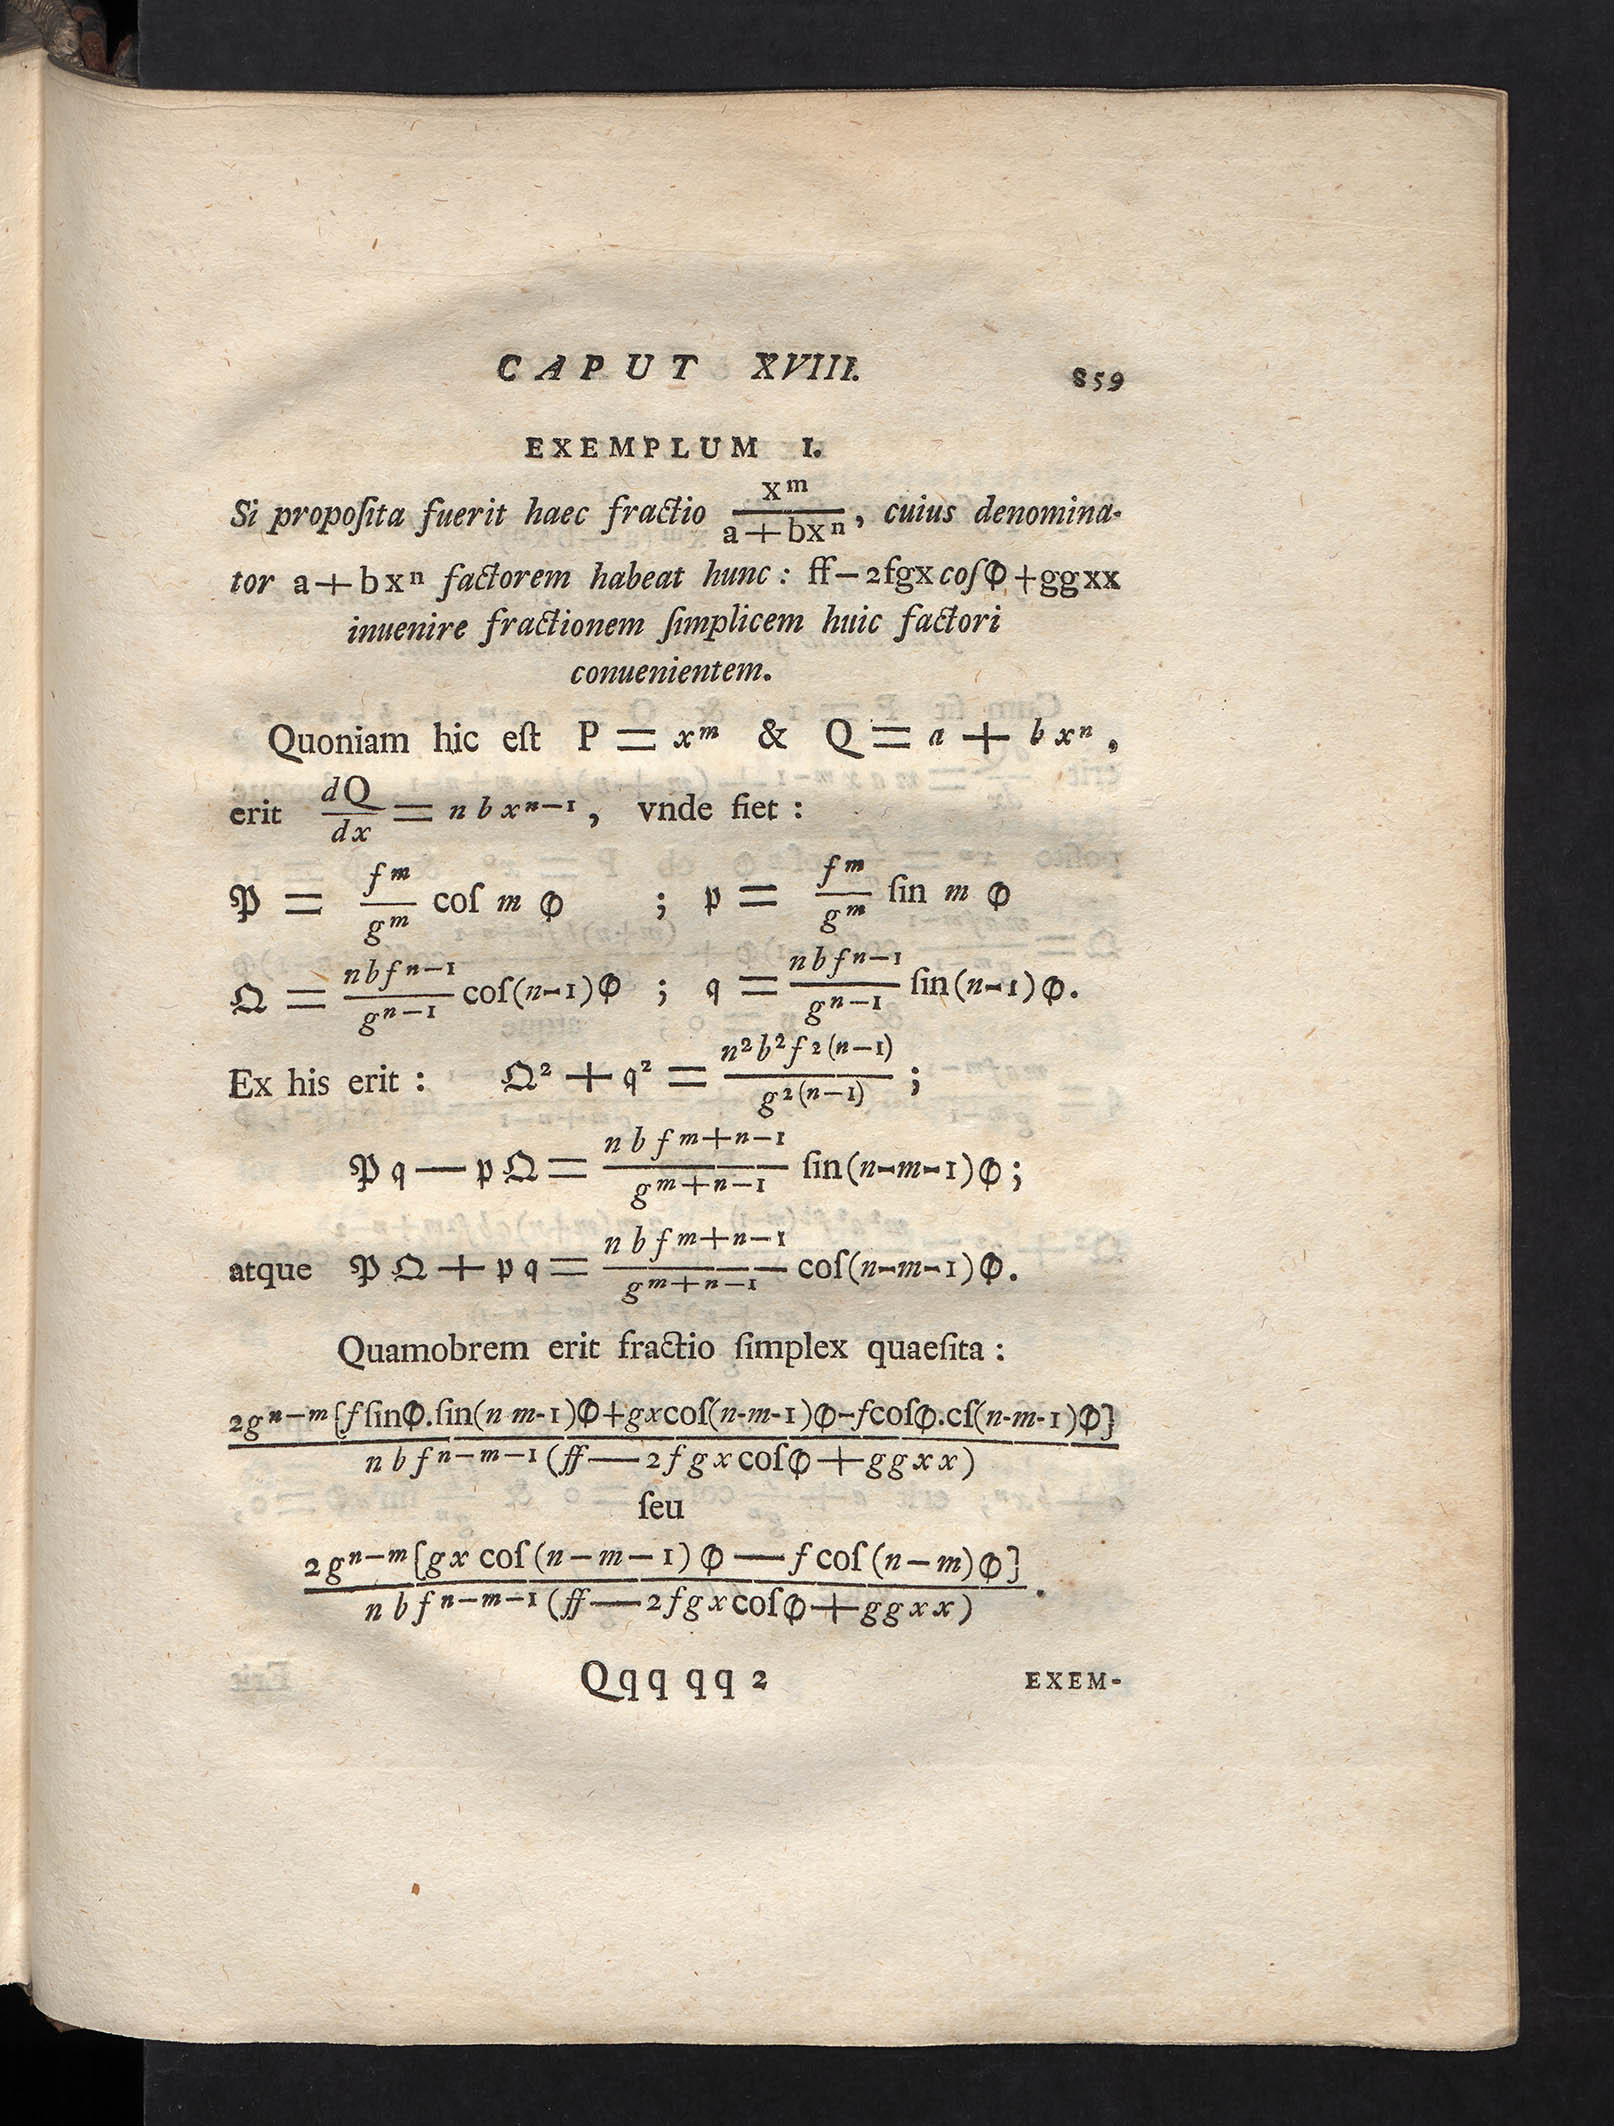 CAPUT XVIII. 859
EXEMPLUM I.
Si propoſita fuerit haec fractio \frac{x^m}{a+bx^n}, cuius denomina-
tor a+bx^n factorem habeat hunc: ff−2fgx coſΦ+ggxx
inuenire fractionem ſimplicem huic factori
conuenientem.
Quoniam hic eſt P = x^m & Q = a + bx^n,
erit \frac{dQ}{dx} = nbx^{n−1}, vnde fiet:
𝔓 = \frac{f^m}{g^m} coſ m Φ ; 𝔭 = \frac{f^m}{g^m} ſin m Φ
𝔔 = \frac{nbf^{n−1}}{g^{n−1}} coſ(n-1)Φ ; 𝔮 = \frac{nbf^{n−1}}{g^{n−1}} ſin(n-1)Φ.
Ex his erit: 𝔔^2 + 𝔮^2 = \frac{n^2b^2f^{2(n−1)}}{g^{2(n−1)}};
𝔓𝔮 — 𝔭𝔔 = \frac{nbf^{m+n−1}}{g^{m+n−1}} ſin(n-m-1)Φ;
atque 𝔓𝔔 + 𝔭𝔮 = \frac{nbf^{m+n−1}}{g^{m+n−1}} coſ(n-m-1)Φ.
Quamobrem erit fractio ſimplex quaeſita:
\frac{2g^{n−m}[fſinΦ.ſin(n m-1)Φ+gxcoſ(n-m-1)Φ-fcoſΦ.cſ(n-m-1)Φ]}{nbf^{n−m−1}(ff—2fgxcoſΦ+ggxx)}
ſeu
\frac{2g^{n−m}[gx coſ(n−m−1)Φ—f coſ(n−m)Φ]}{nbf^{n−m−1}(ff—2fgxcoſΦ+ggxx)}.
Qqq qq 2 EXEM-